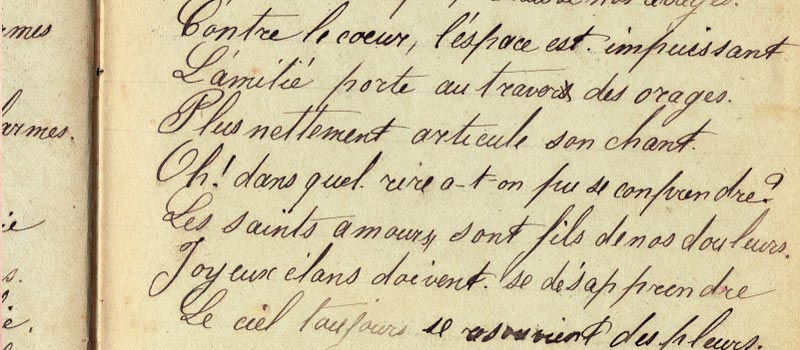 rmes
larmes.
ie
s.
ie.
de nos
Contre le coeur, l'éspace est impuissant
L'ámitié porte au travers des orages.
Plus nettement articule son chant.
Oh! dans quel rire a-t-on pu se conprendre?
Les saints amours, sont fils de nos douleurs.
Joyeux élans doivent se désapprendre
Le ciel toujours se des pleurs.